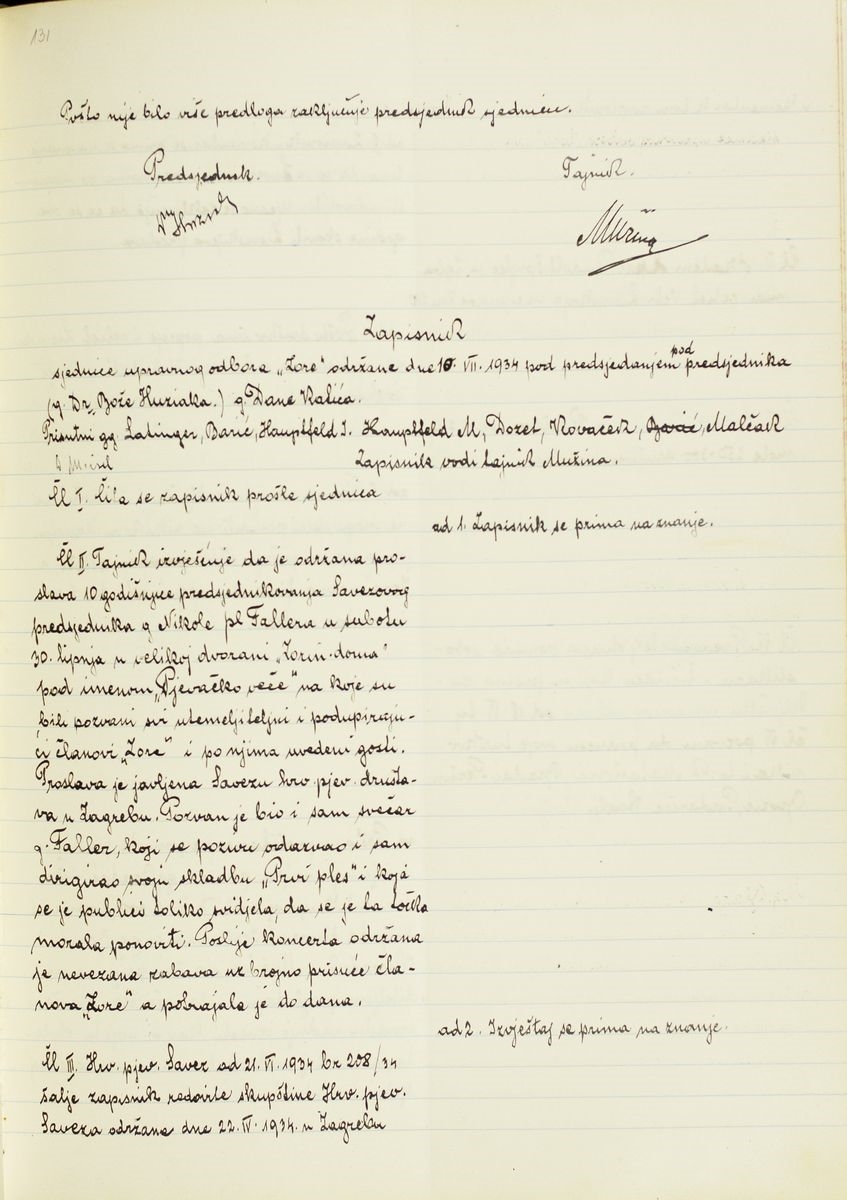 131
Pošto nije bilo više predloga zaključuje predsjednik sjednicu.
Predsjednik.
Tajnik.
Mužina
Zapisnik
sjednice upravnog odbora „Zore" održane dne 10. VII. 1934 pod predsjedanjem podpredsjednika
(g. Dr. Bože Huziaka.) g. Dane Kalića.
Prisutni gg. Latinger, Barić, Hauptfeld I. Hauptfeld M, Dozet, Kovaček, Barić, Malčak
Zapisnik vodi tajnik Mužina.
Čl I. Čita se zapisnik prošle sjednica
ad 1. Zapisnik se prima na znanje.
Čl II. Tajnik izvješćuje da je održana pro-
slava 10 godišnjice predsjednikovanja Savezovog
predsjednika g Nikole pl Fallera u subotu
30. lipnja u velikoj dvorani „Zorin-doma"
pod imenom „Pjevačko veče" na koje su
bili pozvani svi utemeljiteljni i podupiraju-
ći članovi „Zore" i po njima uvedeni gosti.
Proslava je javljena Savezu hrv pjev. društa-
va u Zagrebu. Pozvan je bio i sam svečar
g. Faller, koji se pozivu odazvao i sam
dirigirao svoju skladbu „Prvi ples" i koja
se je publici toliko svidjela, da se je ta točka
morala ponoviti. Poslije koncerta održana
je nevezana zabava uz brojno prisuće čla-
nova „Zore" a pobrajala je do dana.
ad 2. Izvještaj se prima na znanje.
Čl III. Hrv. pjev. Savez od 21. VI. 1934 br 208/34
šalje zapisnik redovite skupštine Hrv. pjev.
Saveza održane dne 22. IV. 1934. u Zagrebu